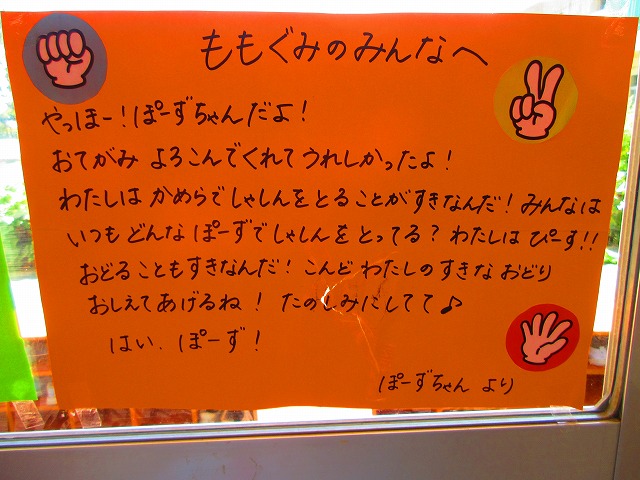 ももぐみのみんなへ
やっほー！ぽーずちゃんだよ！
おてがみ よろこんでくれて うれしかったよ！
わたしは かめらで しゃしんを とることがすきなんだ！みんなは
いつも どんな ぽーずで しゃしんを とってる？ わたしは ぴーす!!
おどることもすきなんだ！こんど わたしの すきな おどり
おしえてあげるね！ たのしみにしてて♪
はい、ぽーず！
ぽーずちゃん より